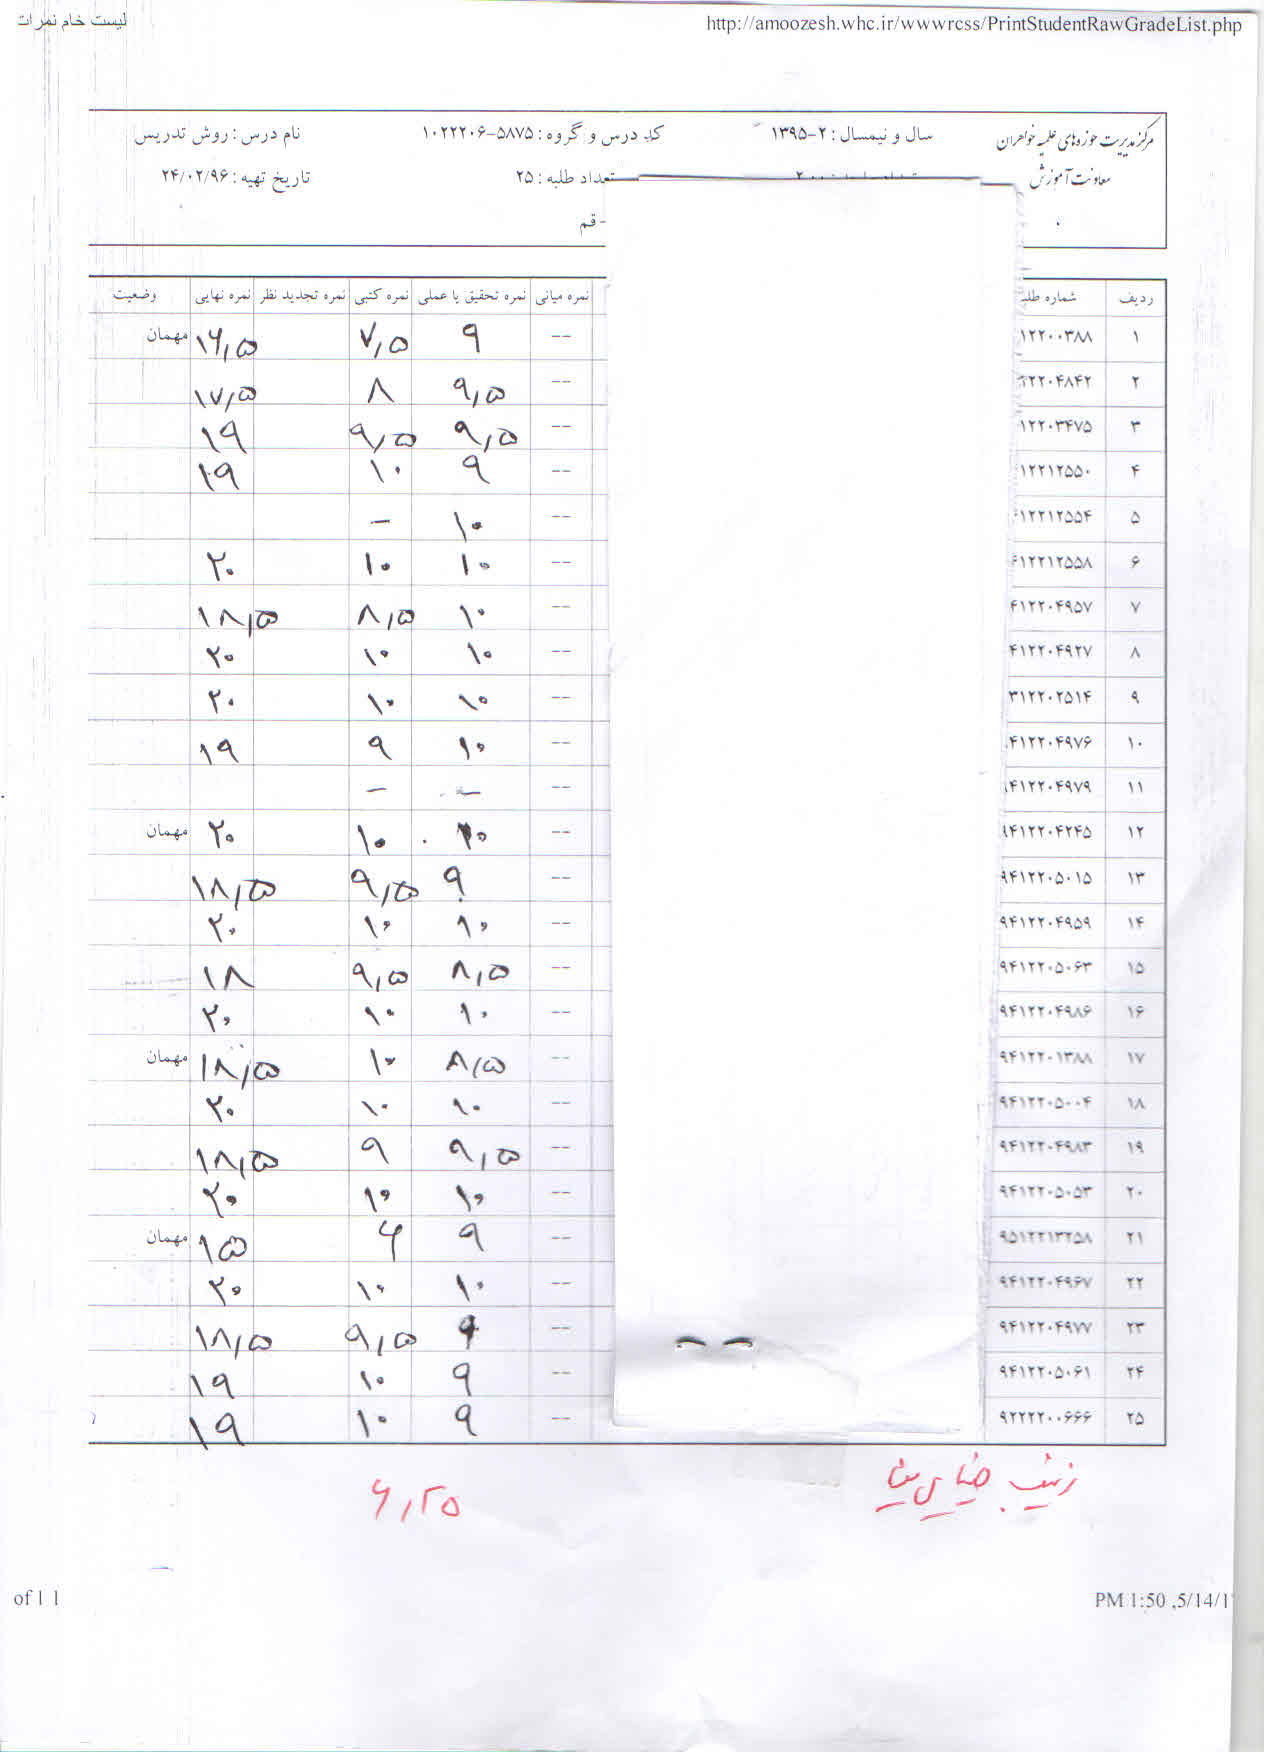 لیست خام نمرات http://amoozesh.whc.ir/wwwrcss/PrintStudentRawGradeList.php
مرکز مدیریت حوزه‌های علمیه خواهران سال و نیمسال : ۲-۱۳۹۵ کد درس و گروه : ۵۸۷۵-۱۰۲۲۲۰۶ نام درس : روش تدریس
معاونت آموزش تعداد طلبه : ۲۵ تاریخ تهیه : ۲۴/۰۲/۹۶
- قم
ردیف شماره طلبه نمره میانی نمره تحقیق یا عملی نمره کتبی نمره تجدید نظر نمره نهایی وضعیت
۱ ۱۲۲۰۰۳۸۸ -- ۹ ۷,۵ ۱۶,۵ مهمان
۲ ۲۲۰۴۸۴۲ -- ۹,۵ ۸ ۱۷,۵
۳ ۱۲۲۰۳۴۷۵ -- ۹,۵ ۹,۵ ۱۹
۴ ۱۲۲۱۲۵۵۰ -- ۹ ۱۰ ۱۹
۵ ۱۲۲۱۲۵۵۴ -- ۱۰ –
۶ ۴۱۲۲۱۲۵۵۸ -- ۱۰ ۱۰ ۲۰
۷ ۴۱۲۲۰۴۹۵۷ -- ۱۰ ۸,۵ ۱۸,۵
۸ ۴۱۲۲۰۴۹۲۷ -- ۱۰ ۱۰ ۲۰
۹ ۳۱۲۲۰۲۵۱۴ -- ۱۰ ۱۰ ۲۰
۱۰ ۴۱۲۲۰۴۹۷۶ -- ۱۰ ۹ ۱۹
۱۱ ۴۱۲۲۰۴۹۷۹ -- – –
۱۲ ۹۴۱۲۲۰۴۲۴۵ -- ۱۰ ۱۰ ۲۰ مهمان
۱۳ ۹۴۱۲۲۰۵۰۱۵ -- ۹ ۹,۵ ۱۸,۵
۱۴ ۹۴۱۲۲۰۴۹۵۹ -- ۱۰ ۱۰ ۲۰
۱۵ ۹۴۱۲۲۰۵۰۶۳ -- ۸,۵ ۹,۵ ۱۸
۱۶ ۹۴۱۲۲۰۴۹۸۶ -- ۱۰ ۱۰ ۲۰
۱۷ ۹۴۱۲۲۰۱۳۸۸ -- ۸,۵ ۱۰ ۱۸,۵ مهمان
۱۸ ۹۴۱۲۲۰۵۰۰۴ -- ۱۰ ۱۰ ۲۰
۱۹ ۹۴۱۲۲۰۴۹۸۳ -- ۹,۵ ۹ ۱۸,۵
۲۰ ۹۴۱۲۲۰۵۰۵۳ -- ۱۰ ۱۰ ۲۰
۲۱ ۹۵۱۲۲۱۳۲۵۸ -- ۹ ۶ ۱۵ مهمان
۲۲ ۹۴۱۲۲۰۴۹۶۷ -- ۱۰ ۱۰ ۲۰
۲۳ ۹۴۱۲۲۰۴۹۷۷ -- ۹ ۹,۵ ۱۸,۵
۲۴ ۹۴۱۲۲۰۵۰۶۱ -- ۹ ۱۰ ۱۹
۲۵ ۹۲۲۲۲۰۰۶۶۶ -- ۹ ۱۰ ۱۹
زینب
۶,۲۵
of 1 1 PM 1:50 ,5/14/1